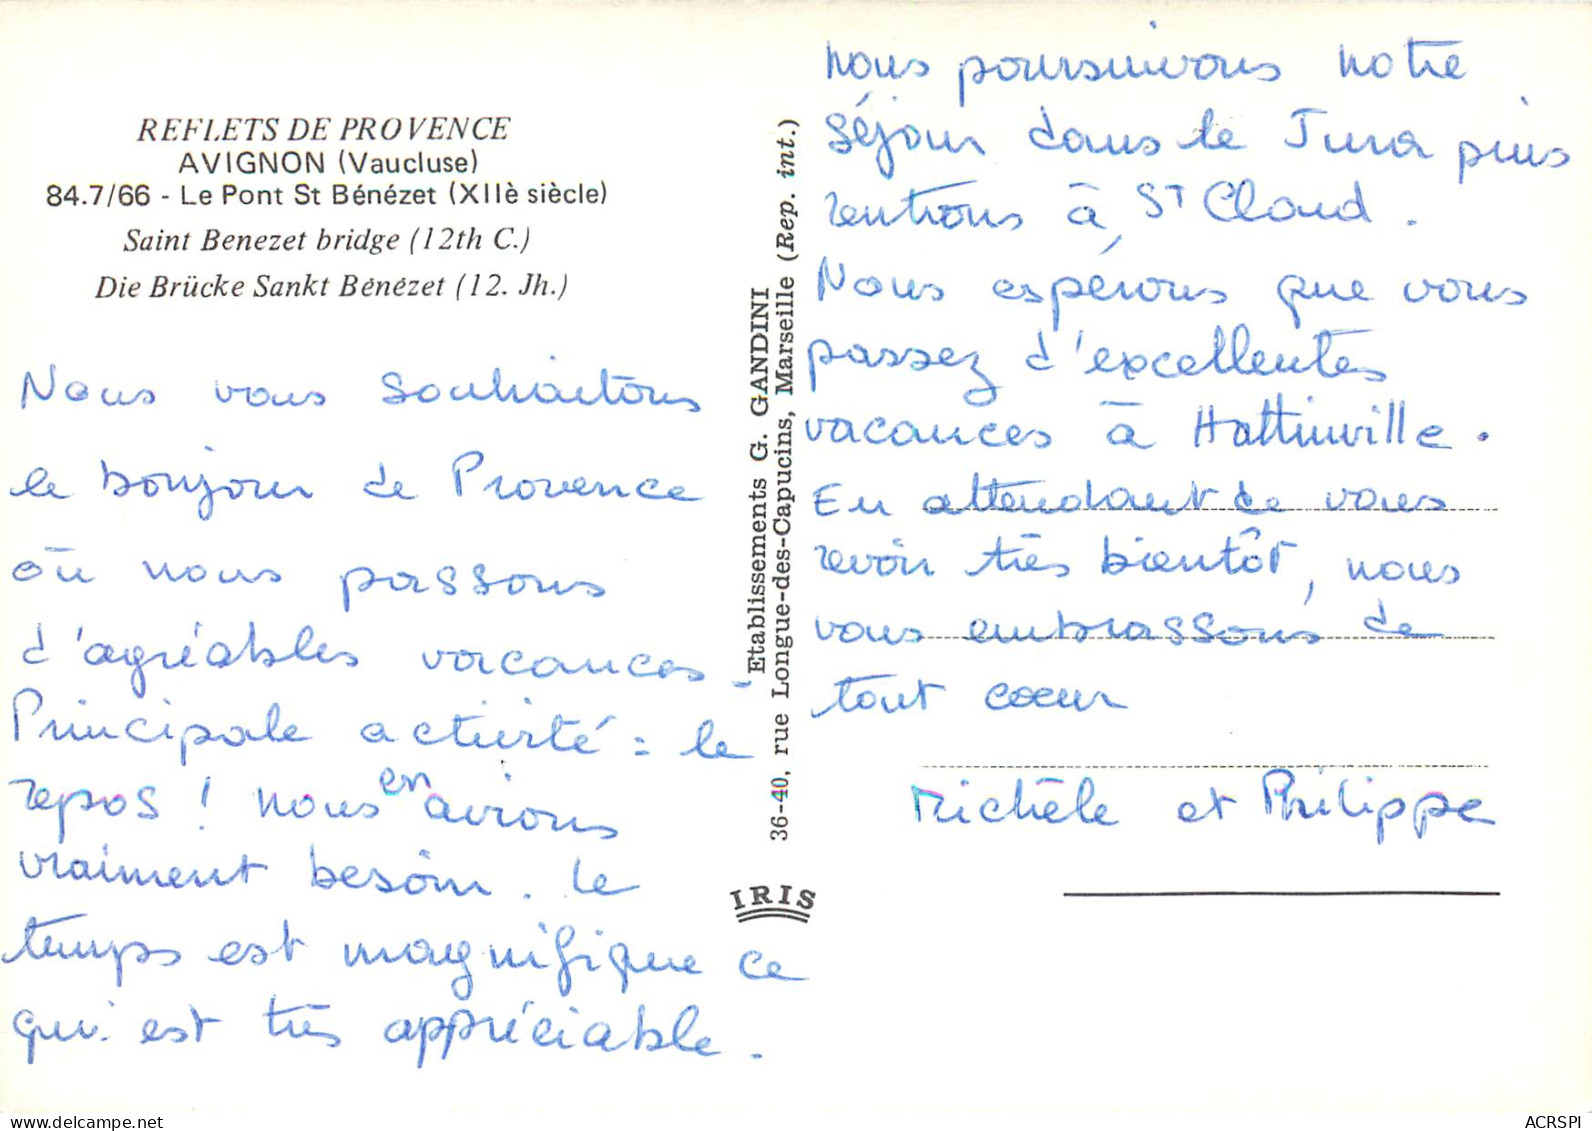 REFLETS DE PROVENCE
AVIGNON (Vaucluse)
84.7/66 - Le Pont St Bénézet (XIIè siècle)
Saint Benezet bridge (12th C.)
Die Brücke Sankt Bénézet (12. Jh.)
Nous vous souhaitons
le bonjour de Provence
où nous passons
d'agréables vacances -
Principale activité : le
repos ! nous en avions
vraiment besoin. le
temps est magnifique ce
qui est très appréciable.
Etablissements G. GANDINI
36-40, rue Longue-des-Capucins, Marseille (Rep. int.)
IRIS
nous poursuivons notre
séjour dans le Jura puis
rentrons à St Cloud.
Nous espérons que vous
passez d'excellentes
vacances à Hattinville.
En attendant de vous
revoir très bientôt, nous
vous embrassons de
tout coeur
Michèle et Philippe
delcampe.net
ACRSPI